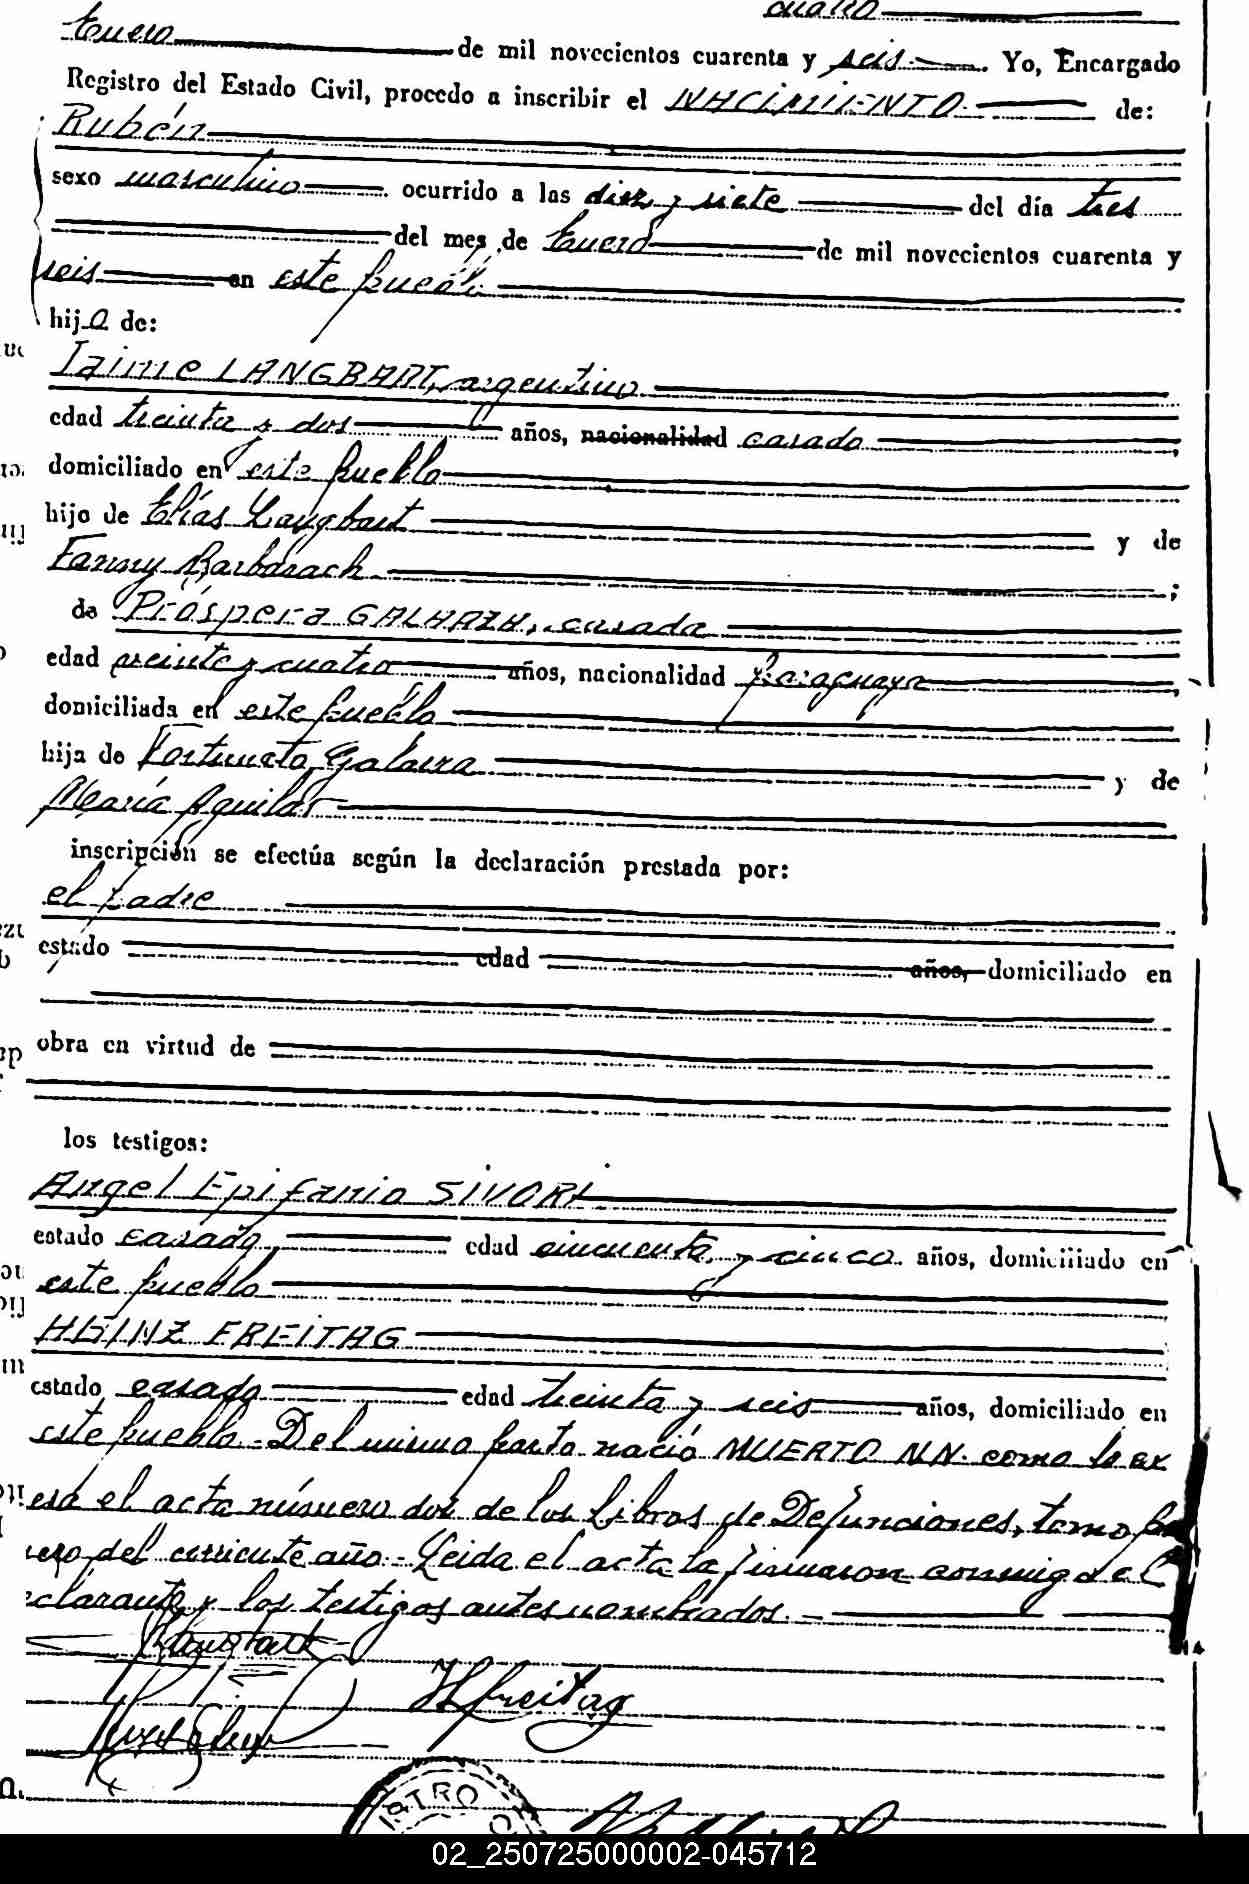 cuatro
Enero de mil novecientos cuarenta y seis. Yo, Encargado
Registro del Estado Civil, procedo a inscribir el NACIMIENTO de:
Rubén
sexo masculino ocurrido a las diez y siete del día tres
del mes de Enero de mil novecientos cuarenta y
seis en este pueblo
hijo de:
Jaime LANGBART, argentino
edad treinta y dos años, nacionalidad casado
domiciliado en este pueblo
hijo de Elías Langbart y de
Fanny Barbarach ;
de Próspera GALARZA, casada
edad veinte y cuatro años, nacionalidad paraguaya
domiciliada en este pueblo
hija de Fortunato Galarza y de
María Aguilar
inscripción se efectúa según la declaración prestada por:
el padre
estado edad años, domiciliado en
obra en virtud de
los testigos:
Angel Epifanio SIVORI
estado casado edad cincuenta y cinco años, domiciliado en
este pueblo
HEINZ FREITAG
estado casado edad treinta y seis años, domiciliado en
este pueblo - Del mismo parto nació MUERTO N.N. como lo ex
esa el acta número dos de los Libros de Defunciones, tomo
del corriente año - Leida el acta la firmaron conmigo el
eclarante y los testigos antes nombrados. -
Langbart
HFreitag
ISTRO
02_250725000002-045712